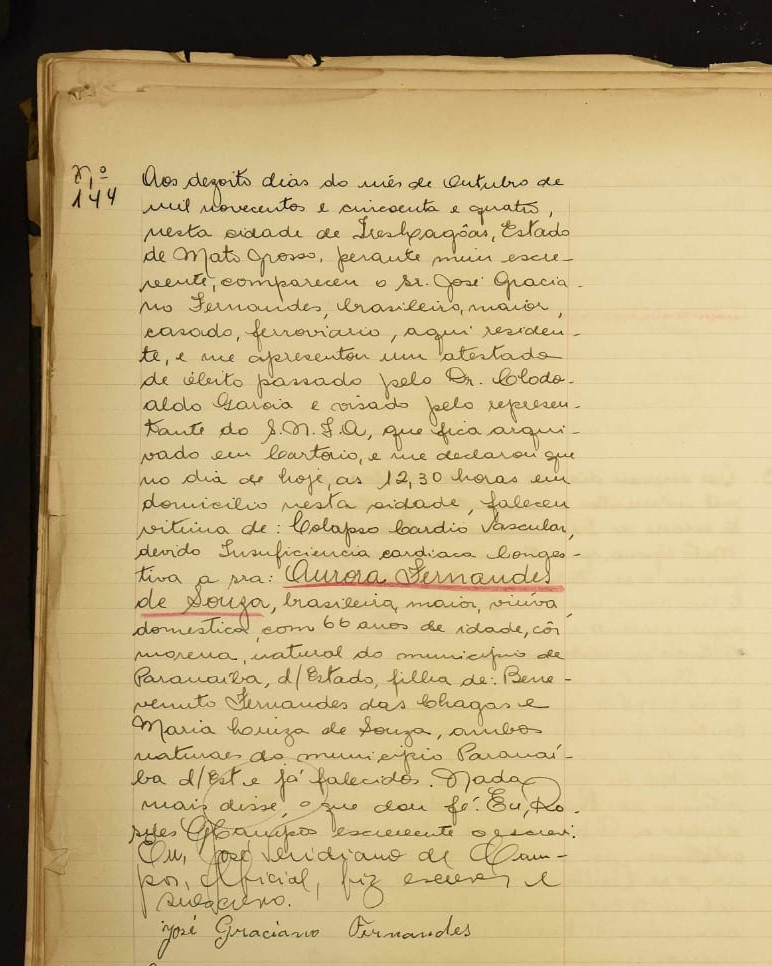 Nº
144
Aos dezoito dias do mês de Outubro de
mil novecentos e cincoenta e quatro,
nesta cidade de Treslagôas, Estado
de Mato Grosso, perante mim escre-
vente, compareceu o Sr. José Gracia-
no Fernandes, brasileiro, maior,
casado, ferroviario, aqui residen-
te, e me apresentou um atestado
de óbito passado pelo Dr. Clodo-
aldo Garcia e visado pelo represen-
tante do S.N.F.A, que fica arqui-
vado em Cartorio, e me declarou que
no dia de hoje, as 12,30 horas em
domicilio nesta cidade, faleceu
vitima de: Colapso Cardio Vascular,
devido Insuficiencia cardiaca Conges-
tiva a sra: Aurora Fernandes
de Souza, brasileira, maior, viúva,
domestica, com 66 anos de idade, côr
morena, natural do municipio de
Paranaiba, d/Estado, filha de: Bene-
venuto Fernandes das Chagas e
Maria Luiza de Souza, ambos
naturaes do municipio Paranaí-
ba d/Est e já falecidos. Nada
mais disse, o que dou fé. Eu,
Campos escrevente o escrevi.
Eu, José de Cam-
pos, Official, fiz escrever e
subscrevo.
José Graciano Fernandes